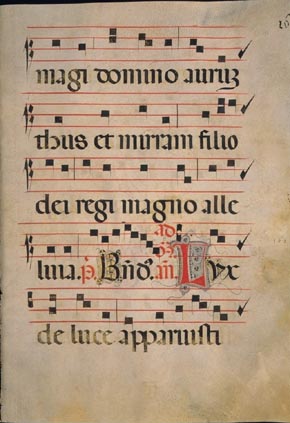 magi domino auruz
thus et mirram filio
dei regi magno alle
ad
luia. p̄. Bn̄d̄. an̄. Lux
de luce apparuisti